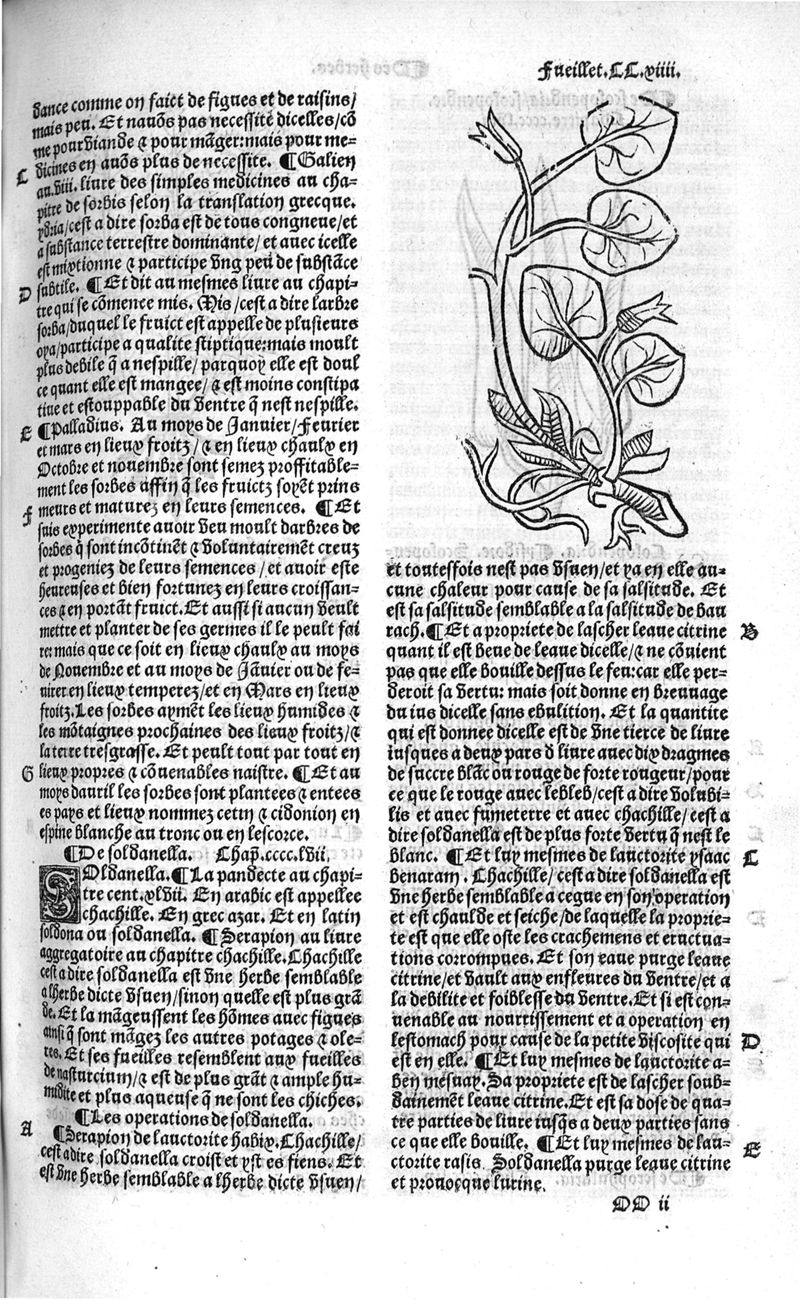 Fueillet.CC.xiiii.
dance comme on faict de figues et de raisins/
mais peu. Et nauõs pas necessite dicelles/cõ
me pour viande ⁊ pour mãger: mais pour me-
dicines en auõs plus de necessite. ¶Galien
C
au.viii. liure des simples medicines au cha-
pitre de sorbis selon la translation grecque.
ydria/cest a dire sorba est de tous congneue/et
a substance terrestre dominante/ et auec icelle
est mixtionne ⁊ participe vng peu de substãce
D
subtile. ¶Et dit au mesmes liure au chapi-
tre qui se cõmence mis. Mis/cest a dire larbre
sorba/duquel le fruict est appelle de plusieurs
oya/participe a qualite stiptique: mais moult
plus debile q̃ a nespille/ parquoy elle est doul
ce quant elle est mangee/ ⁊ est moins constipa
tiue et estouppable du ventre q̃ nest nespille.
E
¶Palladius. Au moys de Januier/Feurier
et mars en lieux froitz/ ⁊ en lieux chaulx en
Octobre et nouembre sont semez proffitable-
ment les sorbes affin q̃ les fruictz soyẽt prins
F
meurs et maturez en leurs semences. ¶Et
suis experimente auoir veu moult darbres de
sorbes q̃ sont incõtinẽt ⁊ voluntairemẽt creuz
et progeniez de leurs semences/ et auoir este
heureuses et bien fortunez en leurs croissan-
ces ⁊ en portãt fruict. Et aussi si aucun veult
mettre et planter de ses germes il le peult fai
re: mais que ce soit en lieux chaulx au moys
de Nouembre et au moys de Jãuier ou de fe-
urier en lieux temperez/ et en Mars en lieux
froitz. Les sorbes aymẽt les lieux humides ⁊
les mõtaignes prochaines des lieux froitz/ ⁊
la terre tresgrasse. Et peult tout par tout en
G
lieux propres ⁊ cõuenables naistre. ¶Et au
moys dauril les sorbes sont plantees ⁊ entees
es pays et lieux nommez cetin ⁊ cidonion en
espine blanche au tronc ou en lescorce.
¶De soldanella. Chap̃.cccc.lvii.
SOldanella. ¶La pandecte au chapi-
tre cent.xlvii. En arabic est appellee
chachille. En grec azar. Et en latin
soldona ou soldanella. ¶Serapion au liure
aggregatoire au chapitre chachille. Chachille
cest a dire soldanella est vne herbe semblable
a lherbe dicte vsuen/sinon quelle est plus grã
de. Et la mãgeussent les hõmes auec figues
ainsi q̃ sont mãgez les autres potages ⁊ ole-
res. Et ses fueilles resemblent aux fueilles
de nasturcium/ ⁊ est de plus grãt ⁊ ample hu-
midite et plus aqueuse q̃ ne sont les chiches.
¶Les operations de soldanella.
A
¶Serapion de lauctorite habix. Chachille/
cest a dire soldanella croist et yst es fiens. Et
est vne herbe semblable a lherbe dicte vsuen/
et toutesfois nest pas vsuen/ et ya en elle au-
cune chaleur pour cause de sa salsitude. Et
est sa salsitude semblable a la salsitude de bau
rach. ¶Et a propriete de lascher leaue citrine
B
quant il est beue de leaue dicelle/ ⁊ ne cõuient
pas que elle bouille dessus le feu: car elle per-
deroit sa vertu: mais soit donne en breuuage
du ius dicelle sans ebulition. Et la quantite
qui est donnee dicelle est de vne tierce de liure
iusques a deux pars d̃ liure auec dix dragmes
de succre blãc ou rouge de forte rougeur/pour
ce que le rouge auec lebleb/cest a dire volubi-
lis et auec fumeterre et auec chachille/ cest a
dire soldanella est de plus forte vertu q̃ nest le
blanc. ¶Et luy mesmes de lauctorite ysaac
C
benaram. Chachille/ cest a dire soldanella est
vne herbe semblable a cegue en son operation
et est chaulde et seiche/de laquelle la proprie-
te est que elle oste les crachemens et eructua-
tions corrompues. Et son eaue purge leaue
citrine/et vault aux enfleures du ventre/et a
la debilite et foiblesse du ventre. Et si est con-
uenable au nourrissement et a operation en
lestomach pour cause de la petite viscosite qui
D
est en elle. ¶Et luy mesmes de lauctorite a-
ben mesuay. Sa propriete est de lascher soub-
dainement leaue citrine. Et est sa dose de qua-
tre parties de liure iusq̃s a deux parties sans
ce que elle bouille. ¶Et luy mesmes de lau-
E
ctorite rasis. Soldanella purge leaue citrine
et prouocque lurine.
DD ii